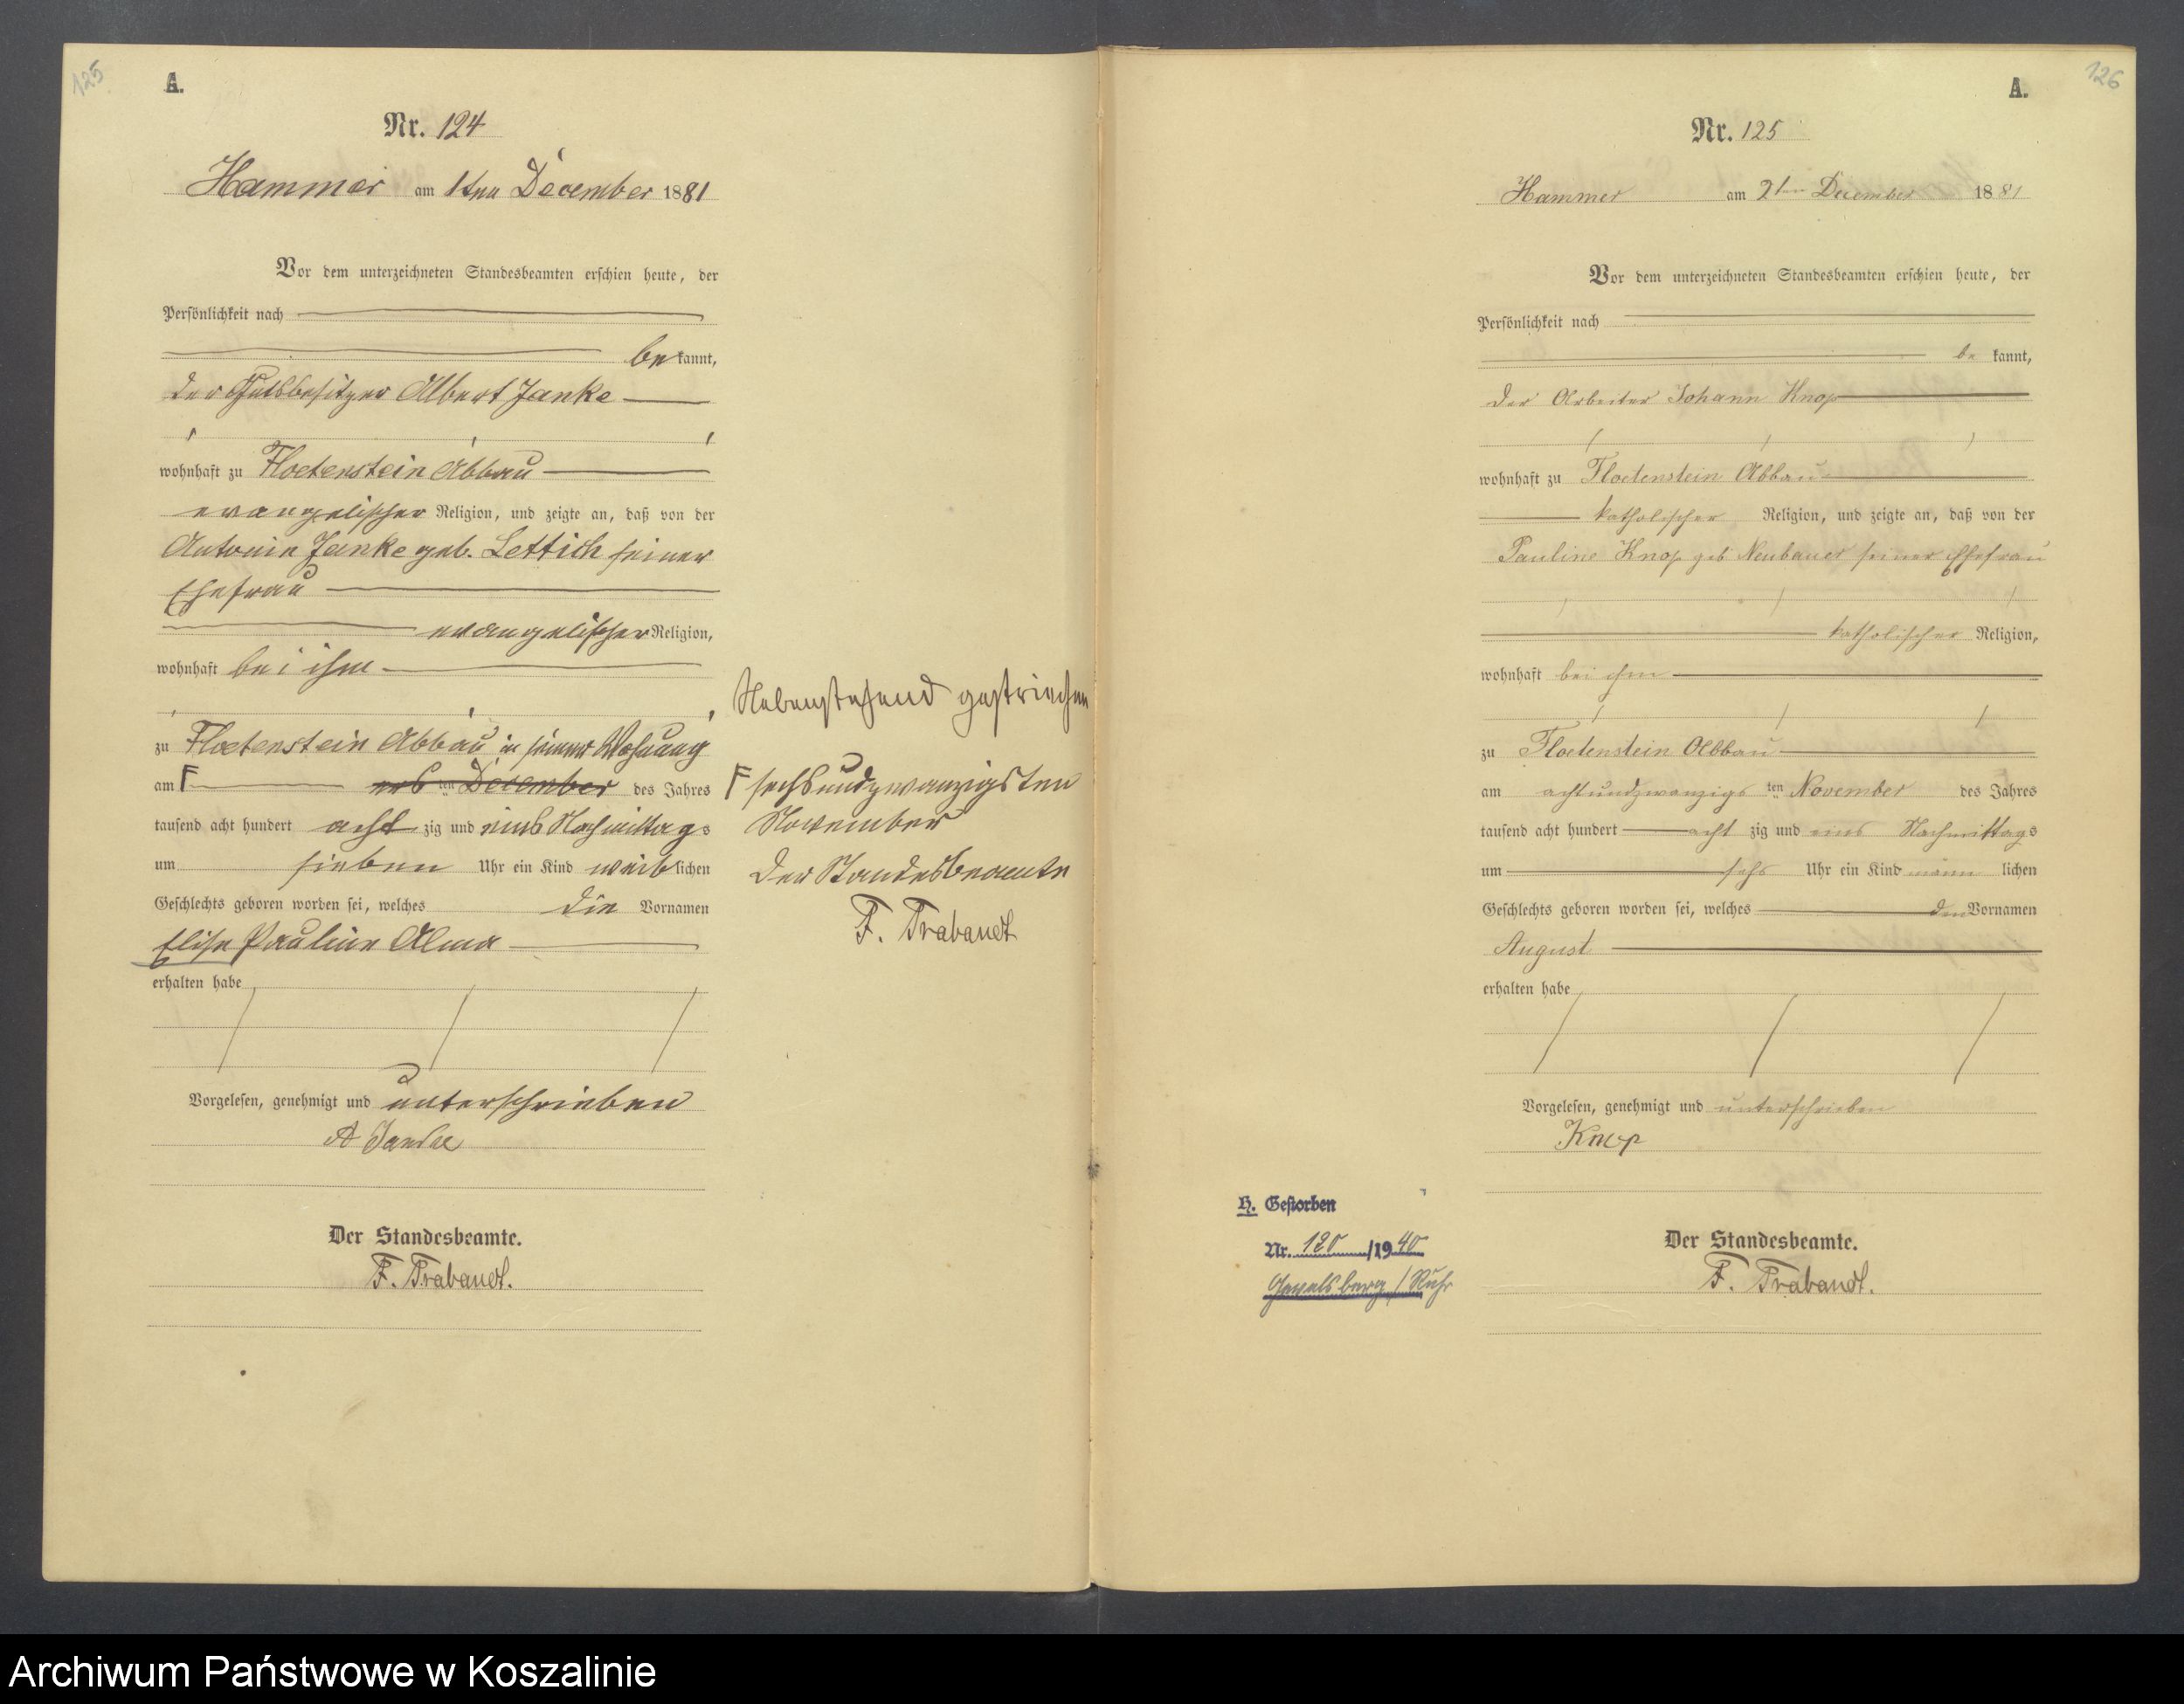 125
A.
Nr. 124
Hammer am 1ten December 1881
Vor dem unterzeichneten Standesbeamten erschien heute, der
Persönlichkeit nach
be kannt,
der Gutsbesitzer Albert Janke
wohnhaft zu Floetenstein Abbau
evangelischer Religion, und zeigte an, daß von der
Antonie Janke geb. Lettich seiner
Ehefrau
evangelischer Religion,
wohnhaft bei ihm
zu Floetenstein Abbau in seiner Wohnung
am ten December des Jahres
tausend acht hundert acht zig und eins Nachmittags
um sieben Uhr ein Kind weiblichen
Geschlechts geboren worden sei, welches die Vornamen
Elise Pauline Alma
erhalten habe
Vorgelesen, genehmigt und unterschrieben
A Janke
Der Standesbeamte.
F. Trabandt.
Nebenstehend gestrichen
sechsundzwanzigsten
November
Der Standesbeamte
F. Trabandt
126
A.
Nr. 125
Hammer am 2ten December 1881
Vor dem unterzeichneten Standesbeamten erschien heute, der
Persönlichkeit nach
be kannt,
der Arbeiter Johann Knop
wohnhaft zu Floetenstein Abbau
katholischer Religion, und zeigte an, daß von der
Pauline Knop geb Neubauer seiner Ehefrau
katholischer Religion,
wohnhaft bei ihm
zu Floetenstein Abbau
am achtundzwanzigs ten November des Jahres
tausend acht hundert acht zig und eins Nachmittags
um sechs Uhr ein Kind männ lichen
Geschlechts geboren worden sei, welches den Vornamen
August
erhalten habe
Vorgelesen, genehmigt und unterschrieben
Knop
Der Standesbeamte.
F. Trabandt.
H. Gestorben
Nr. 120 /1940
Gevelsberg / Ruhr
Archiwum Państwowe w Koszalinie